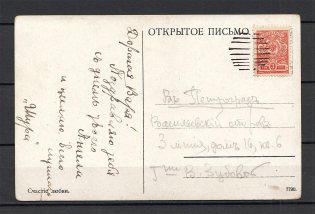 ОТКРЫТОЕ ПИСЬМО
Дорогая Варя!
Поздравляю тебя
съ днемъ твоего
Ангела
и желаю всего
"Шура"
Въ Петроградъ
Васильевскій островъ
3 линія, домъ 16, кв. 6
В. Зубовой
Счастье любви.